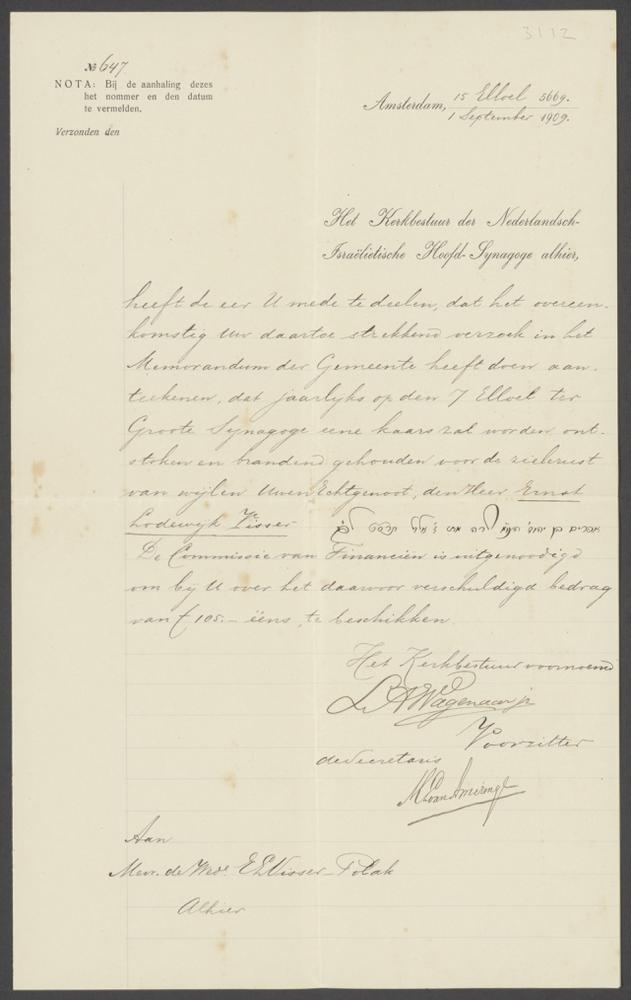 3112
№ 647
NOTA: Bij de aanhaling dezes
het nommer en den datum
te vermelden.
Verzonden den
Amsterdam, 15 Elloel 5669.
1 September 1909.
Het Kerkbestuur der Nederlandsch-
Israëlietische Hoofd-Synagoge alhier,
heeft de eer U mede te deelen, dat het overeen-
komstig Uw daartoe strekkend verzoek in het
Memorandum der Gemeente heeft doen aan-
teekenen, dat jaarlijks op den 7 Elloel ter
Groote Synagoge eene kaars zal worden ont-
stoken en brandend gehouden voor de zielerust
van wijlen Uwen Echtgenoot, den Heer Ernst
Lodewijk Visser אברהם בן
De Commissie van Financiën is uitgenoodigd
om bij U over het daarvoor verschuldigd bedrag
van ƒ 105.- ééns, te beschikken.
Het Kerkbestuur voornoemd
L. A. Wagenaar jr
Voorzitter
de Secretaris
Aan
Mevr. de Wede. E. L. Visser-Polak
Alhier